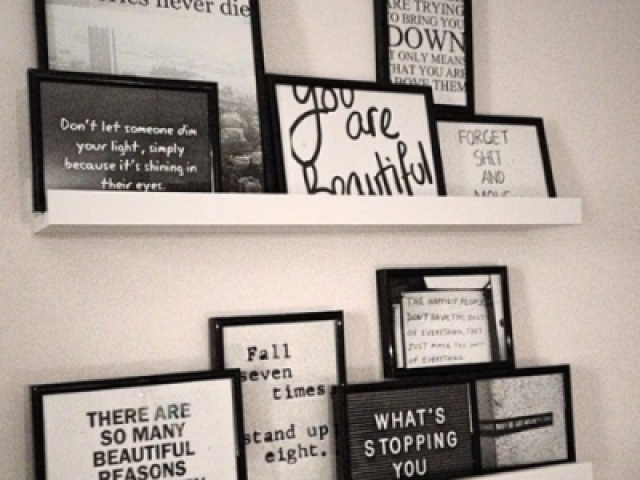 ries never die
Don't let someone dim
your light, simply
because it's shining in
their eyes.
you
are
Beautiful
ARE TRYING
TO BRING YOU
DOWN
IT ONLY MEANS
THAT YOU ARE
ABOVE THEM
FORGET
SHIT
AND
MOVE
THE HAPPIEST PEOPLE
DON'T HAVE THE BEST
OF EVERYTHING, THEY
JUST MAKE THE BEST
OF EVERYTHING
Fall
seven
times
stand up
eight.
THERE ARE
SO MANY
BEAUTIFUL
REASONS
WHAT'S
STOPPING
YOU